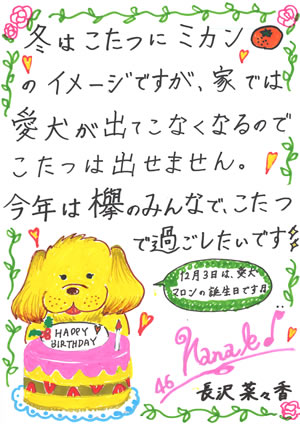 冬はこたつにミカン
のイメージですが、家では
愛犬が出てこなくなるので
こたつは出せません。
今年は欅のみんなで、こたつ
で過ごしたいです
12月3日は、愛犬
マロンの誕生日です
HAPPY
BIRTHDAY
46
長沢菜々香